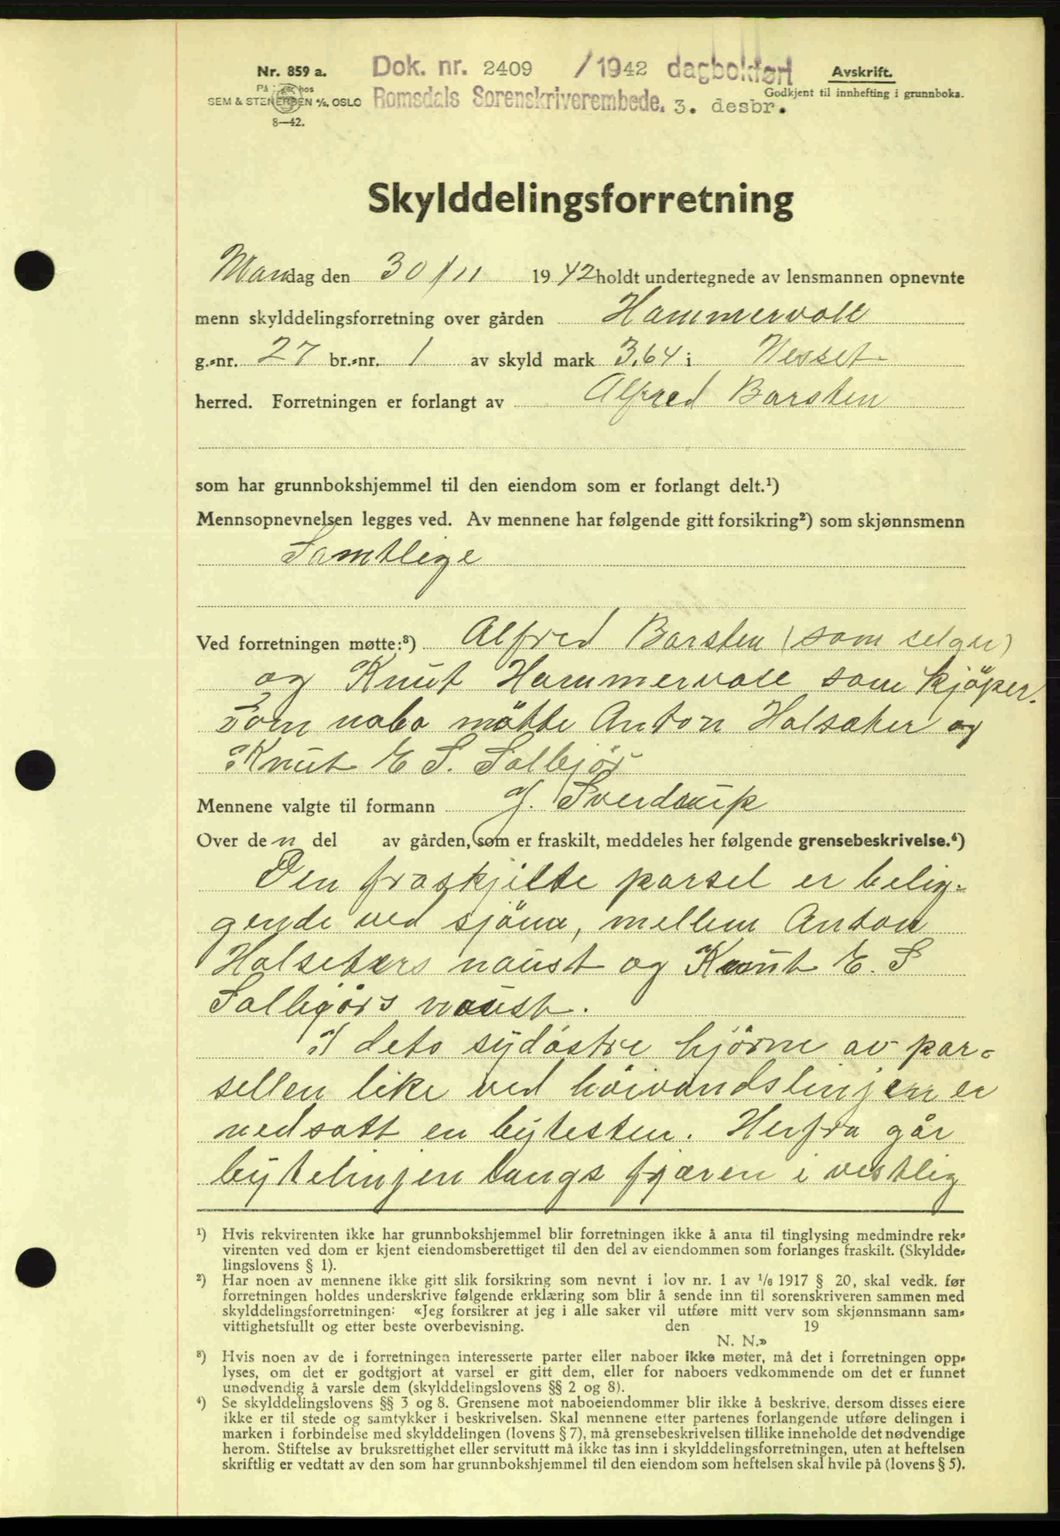 Nr. 859 a.
SEM & STENERSEN A/S, OSLO
8—42.
Dok. nr. 2409 /1942 dagbokført
Romsdals Sorenskriverembede. 3. desbr.
Avskrift.
Godkjent til innhefting i grunnboka.
Skylddelingsforretning
Mandag den 30/11 1942 holdt undertegnede av lensmannen opnevnte
menn skylddelingsforretning over gården Hammervoll
g.-nr. 27 br.-nr. 1 av skyld mark 3,64 i Nesset
herred. Forretningen er forlangt av Alfred Barsten
som har grunnbokshjemmel til den eiendom som er forlangt delt.¹)
Mennsopnevnelsen legges ved. Av mennene har følgende gitt forsikring²) som skjønnsmenn
Samtlige
Ved forretningen møtte:³) Alfred Barsten (som selger)
og Knut Hammervoll som kjöper.
Som nabo mötte Anton Halsæter og
Knut E S. Solbjör
Mennene valgte til formann J. Sverdrup
Over den del av gården, som er fraskilt, meddeles her følgende grensebeskrivelse.⁴)
Den fraskjilte parsel er belig-
gende ved sjöna, mellem Anton
Halseters naust og Knut E. S
Solbjörs naust.
I dets sydöstre hjörne av par-
sellen like ved höivandslinjen er
nedsatt en bytesten. Herfra går
bytelinjen langs fjæren i vestlig
¹) Hvis rekvirenten ikke har grunnbokshjemmel blir forretningen ikke å anta til tinglysing medmindre rek-
virenten ved dom er kjent eiendomsberettiget til den del av eiendommen som forlanges fraskilt. (Skyldde-
lingslovens § 1).
²) Har noen av mennene ikke gitt slik forsikring som nevnt i lov nr. 1 av 1/6 1917 § 20, skal vedk. før
forretningen holdes underskrive følgende erklæring som blir å sende inn til sorenskriveren sammen med
skylddelingsforretningen: «Jeg forsikrer at jeg i alle saker vil utføre mitt verv som skjønnsmann sam-
vittighetsfullt og etter beste overbevisning. den 19
N. N.»
³) Hvis noen av de i forretningen interesserte parter eller naboer ikke møter, må det i forretningen opp-
lyses, om det er godtgjort at varsel er gitt dem, eller for naboers vedkommende om det er funnet
unødvendig å varsle dem (skylddelingslovens §§ 2 og 8).
⁴) Se skylddelingslovens §§ 3 og 8. Grensene mot naboeiendommer blir ikke å beskrive, dersom disses eiere
ikke er til stede og samtykker i beskrivelsen. Skal mennene etter partenes forlangende utføre delingen i
marken i forbindelse med skylddelingen (lovens § 7), må grensebeskrivelsen tillike inneholde det nødvendige
herom. Stiftelse av bruksrettighet eller servitutt må ikke tas inn i skylddelingsforretningen, uten at heftelsen
skriftlig er vedtatt av den som har grunnbokshjemmel til den eiendom som heftelsen skal hvile på (lovens § 5).